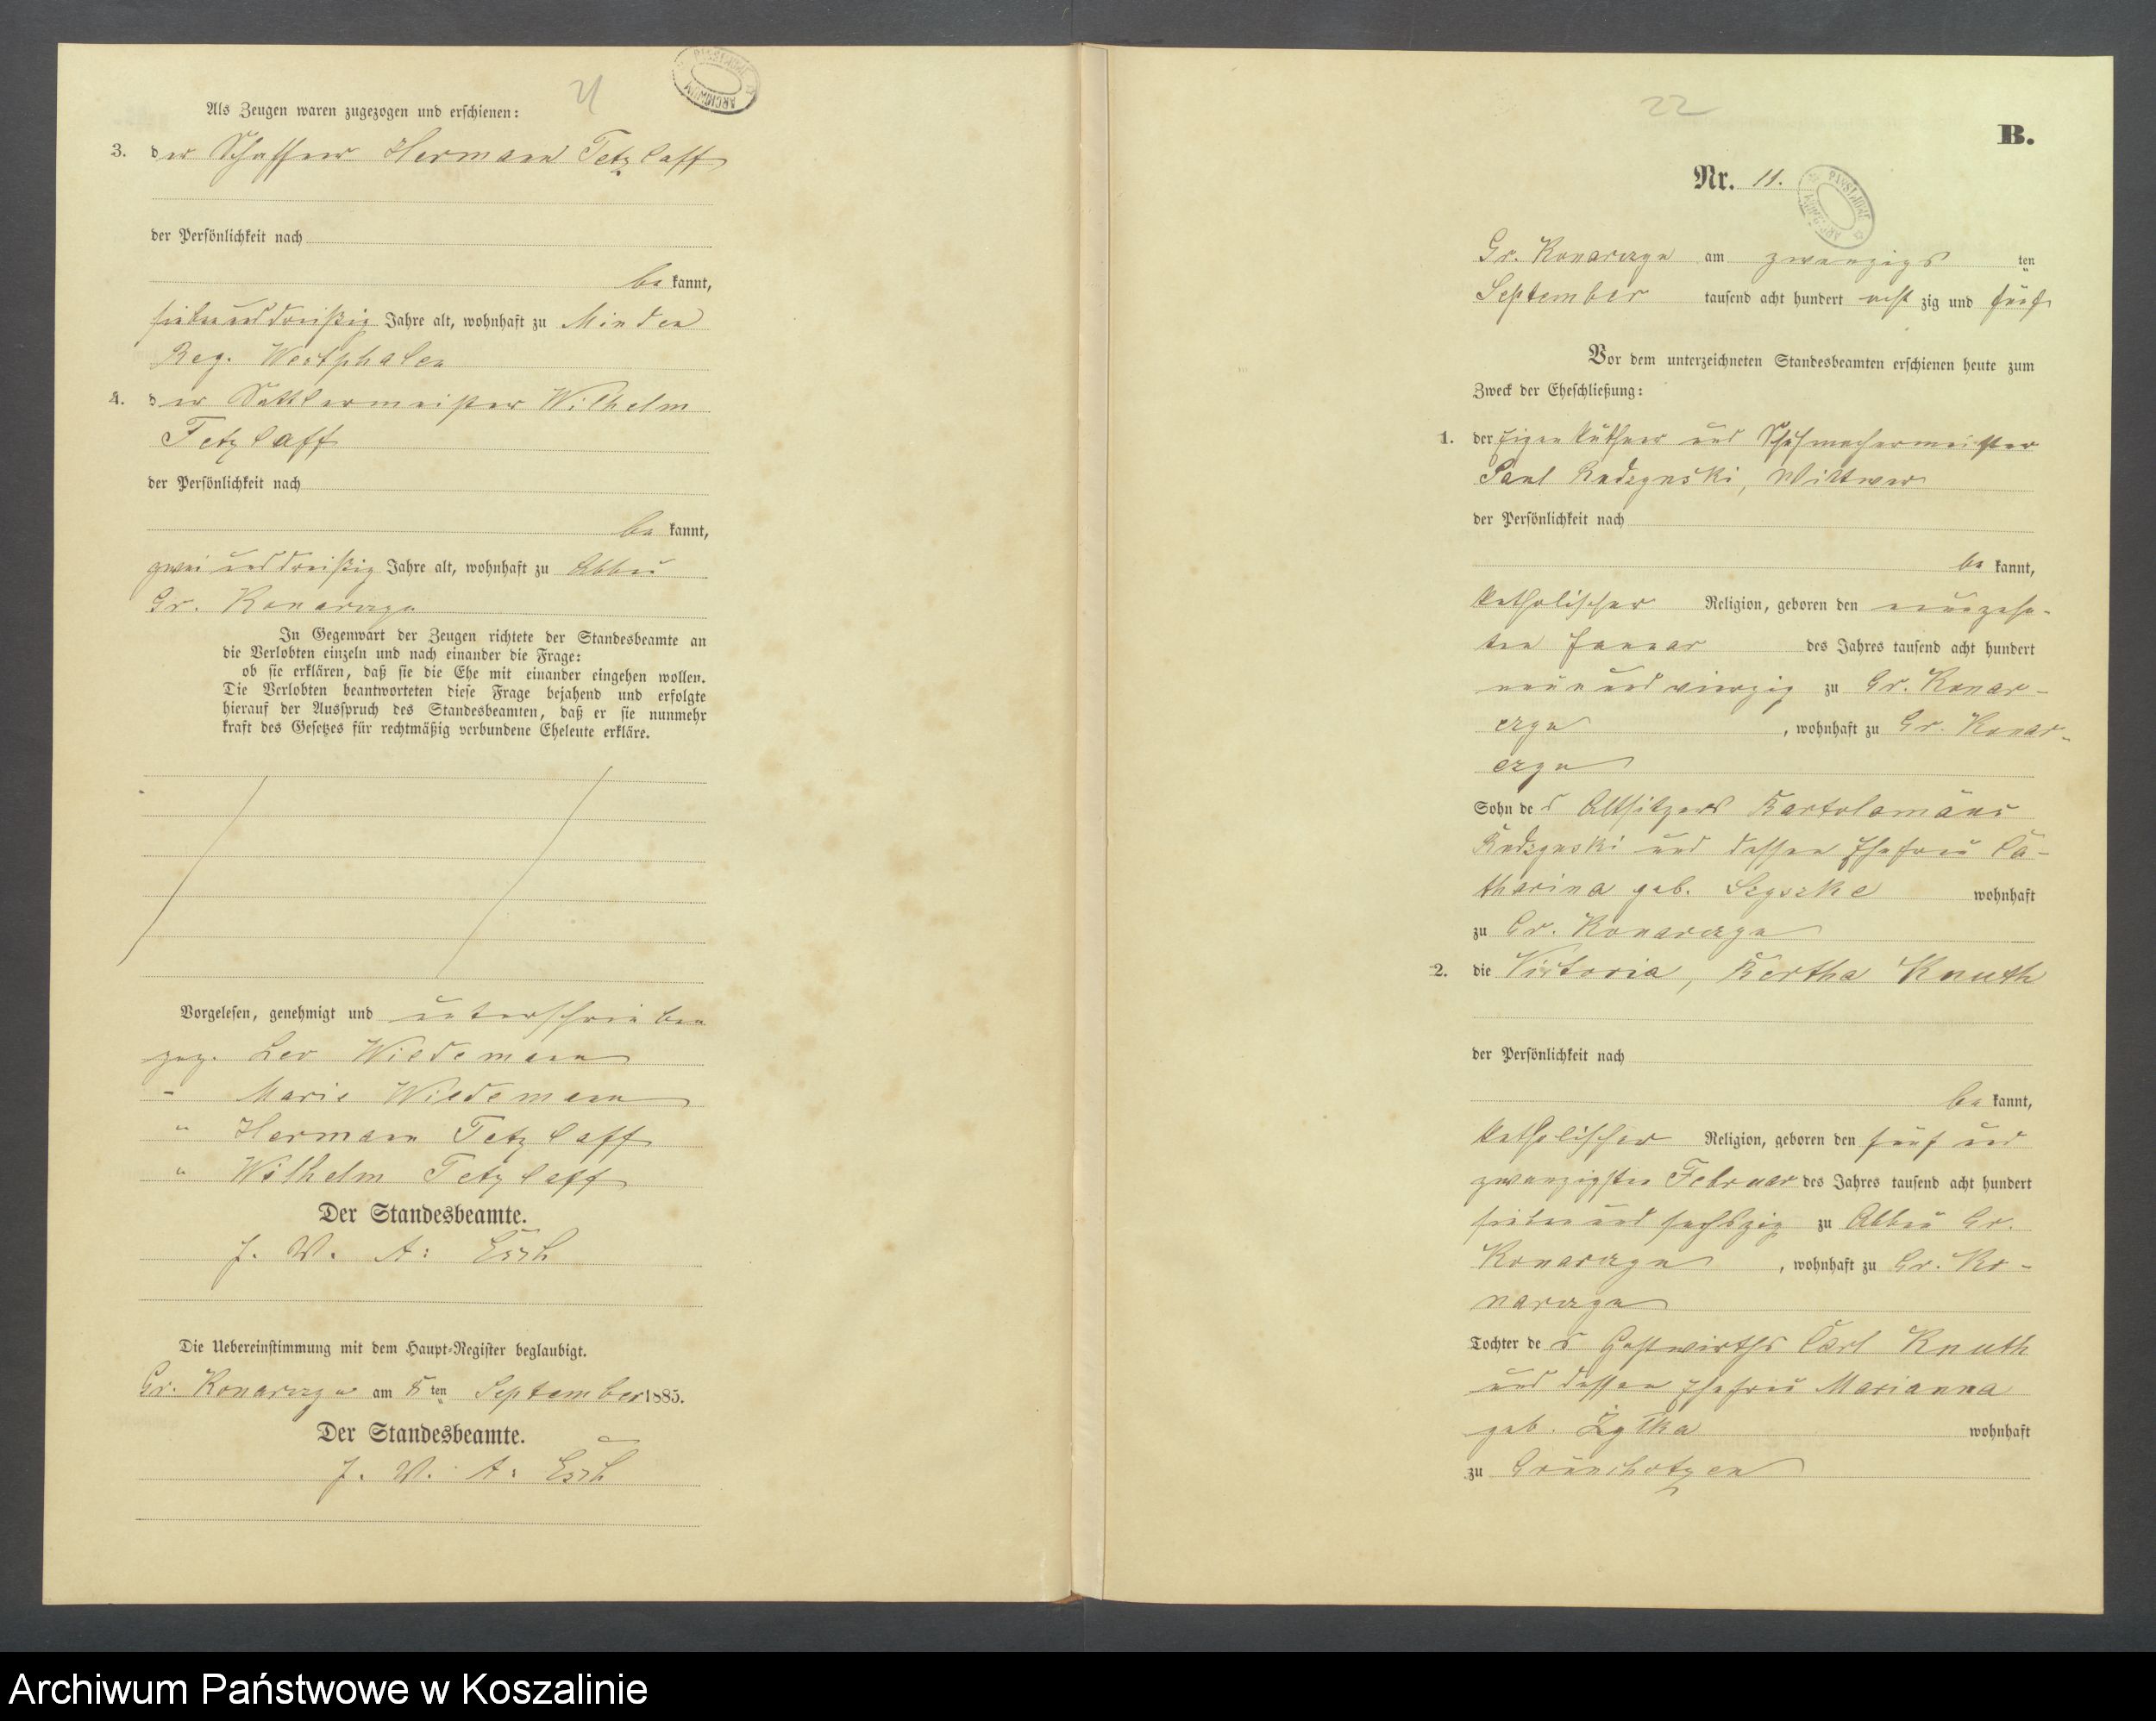 21
PAŃSTWOWE
ARCHIWUM
Als Zeugen waren zugezogen und erschienen:
3. der Schaffner Hermann Tetzlaff
der Persönlichkeit nach
be kannt,
siebenunddreißig Jahre alt, wohnhaft zu Minden
Reg. Westphalen
4. der Sattlermeister Wilhelm
Tetzlaff
der Persönlichkeit nach
be kannt,
zweiunddreißig Jahre alt, wohnhaft zu Abbau
Gr. Konarczyn
In Gegenwart der Zeugen richtete der Standesbeamte an
die Verlobten einzeln und nach einander die Frage:
ob sie erklären, daß sie die Ehe mit einander eingehen wollen.
Die Verlobten beantworteten diese Frage bejahend und erfolgte
hierauf der Ausspruch des Standesbeamten, daß er sie nunmehr
kraft des Gesetzes für rechtmäßig verbundene Eheleute erkläre.
Vorgelesen, genehmigt und unterschrieben
gez. Leo Wiedemann
" Marie Wiedemann
" Hermann Tetzlaff
" Wilhelm Tetzlaff
Der Standesbeamte.
J. V. A:
Die Uebereinstimmung mit dem Haupt-Register beglaubigt.
Gr. Konarczyn am 8 ten September 1885.
Der Standesbeamte.
J. V. A:
22
B.
Nr. 11.
PAŃSTWOWE
ARCHIWUM
Gr. Konarczyn am zwanzigs ten
September tausend acht hundert acht zig und fünf
Vor dem unterzeichneten Standesbeamten erschienen heute zum
Zweck der Eheschließung:
1. der Eigenkäthner und Schuhmachermeister
Paul Rudzynski, Wittwer
der Persönlichkeit nach
be kannt,
katholischer Religion, geboren den neunzehn-
ten Januar des Jahres tausend acht hundert
neunundvierzig zu Gr. Konar-
czyn , wohnhaft zu Gr. Konar-
czyn
Sohn de s Altsitzers Bartolomäus
Rudzynski und dessen Ehefrau Ca-
tharina geb. Szyszke wohnhaft
zu Gr. Konarczyn
2. die Victoria, Bertha Knuth
der Persönlichkeit nach
be kannt,
katholischer Religion, geboren den fünf und
zwanzigsten Februar des Jahres tausend acht hundert
siebenundsechszig zu Abbau Gr.
Konarczyn , wohnhaft zu Gr. Ko-
narczyn
Tochter de s Gastwirths Carl Knuth
und dessen Ehefrau Marianna
geb. Żytka wohnhaft
zu Grünchotzen
Archiwum Państwowe w Koszalinie